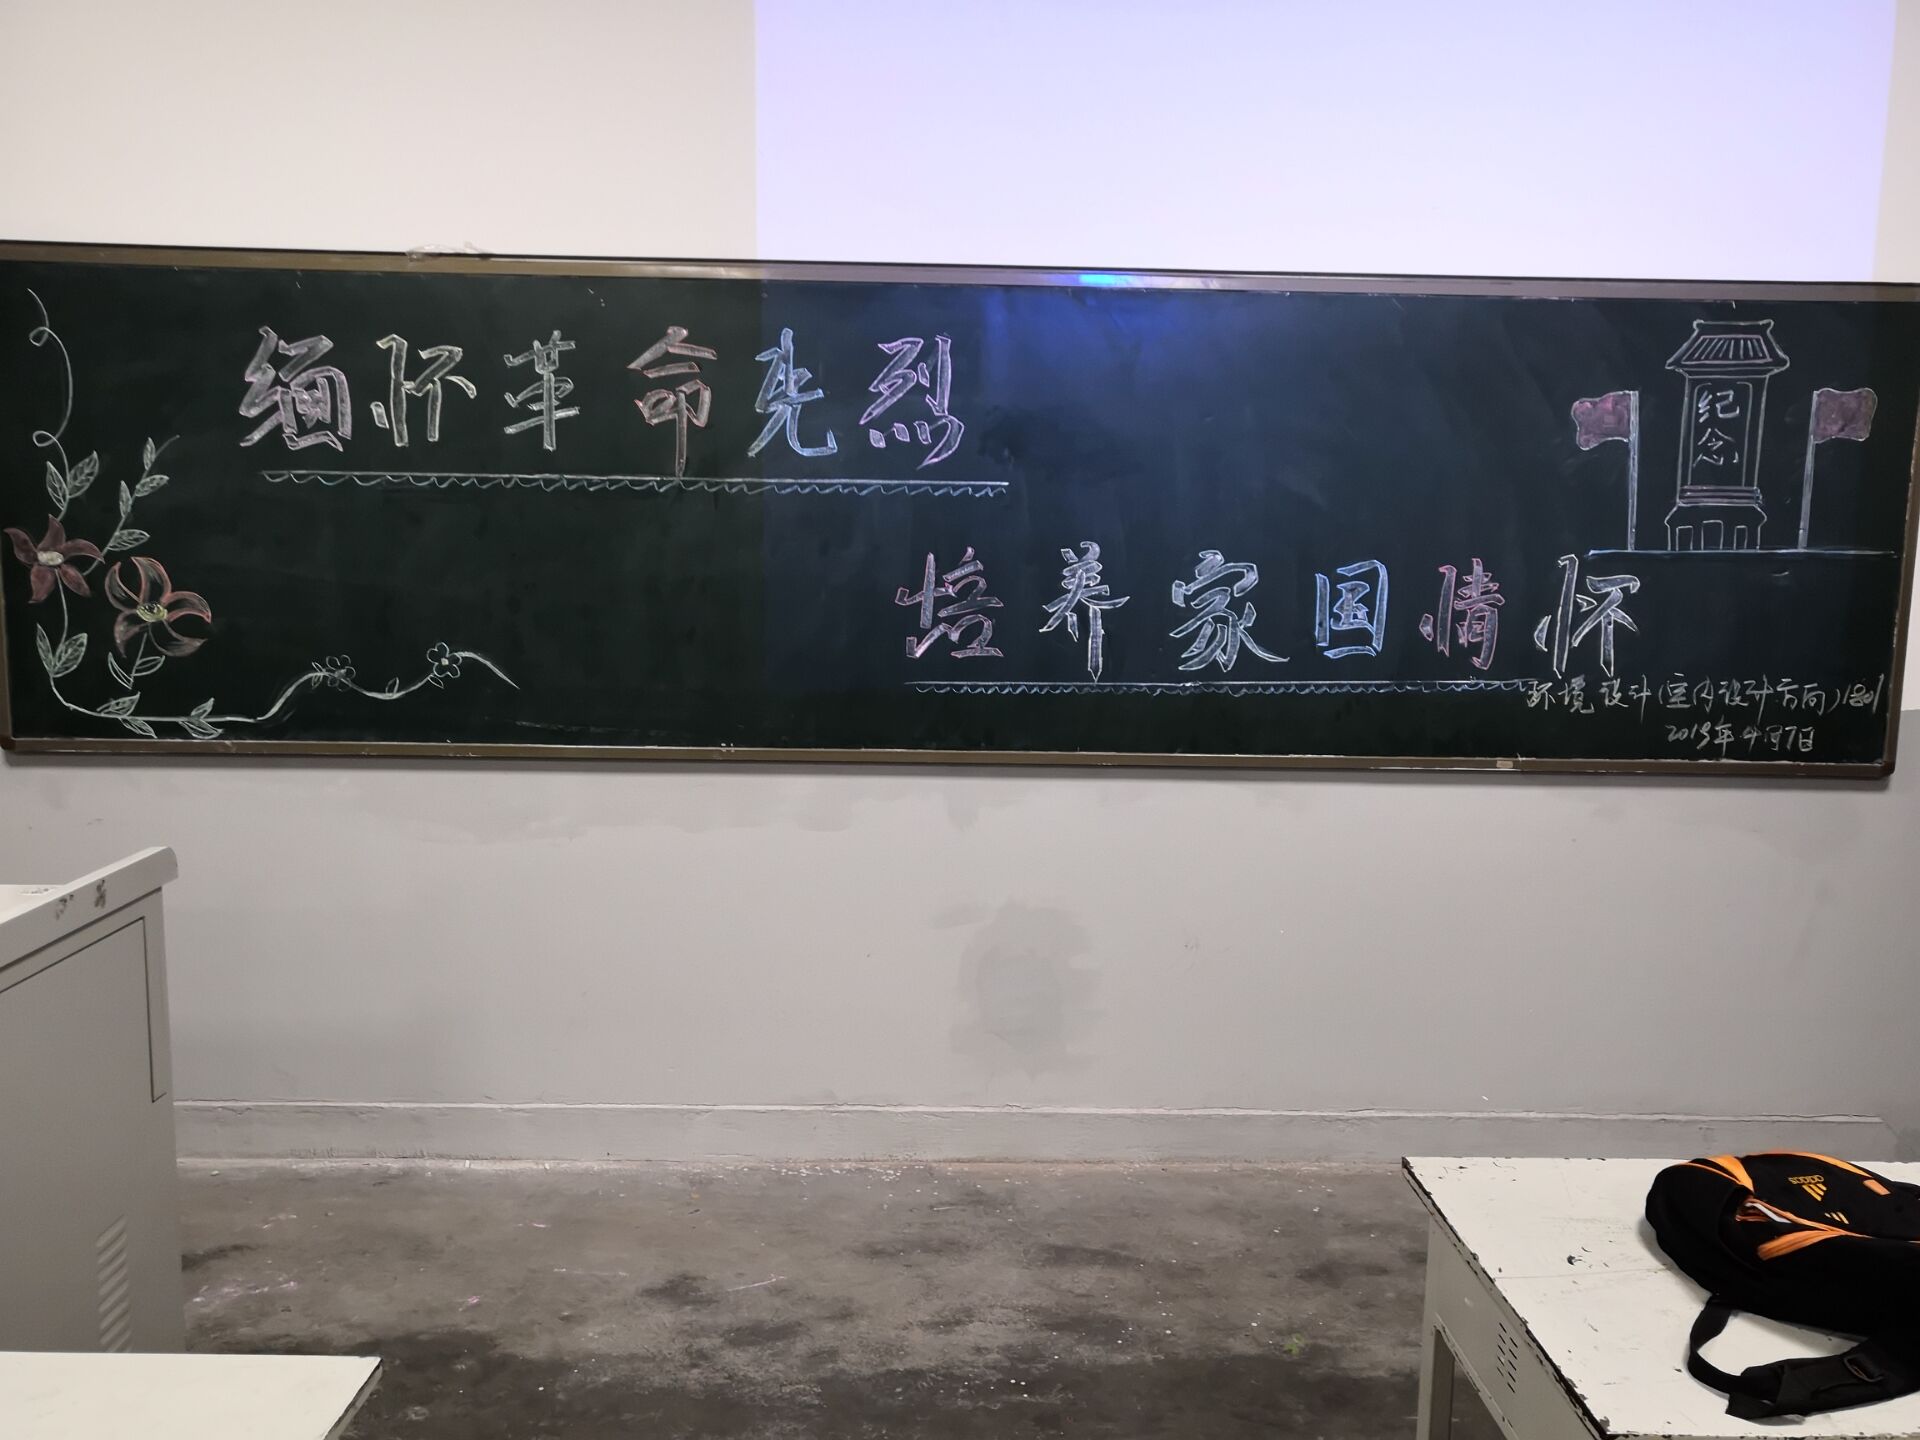 缅怀革命先烈
纪念
培养家国情怀
环境设计(室内设计方向)1801
2019年4月7日
adidas